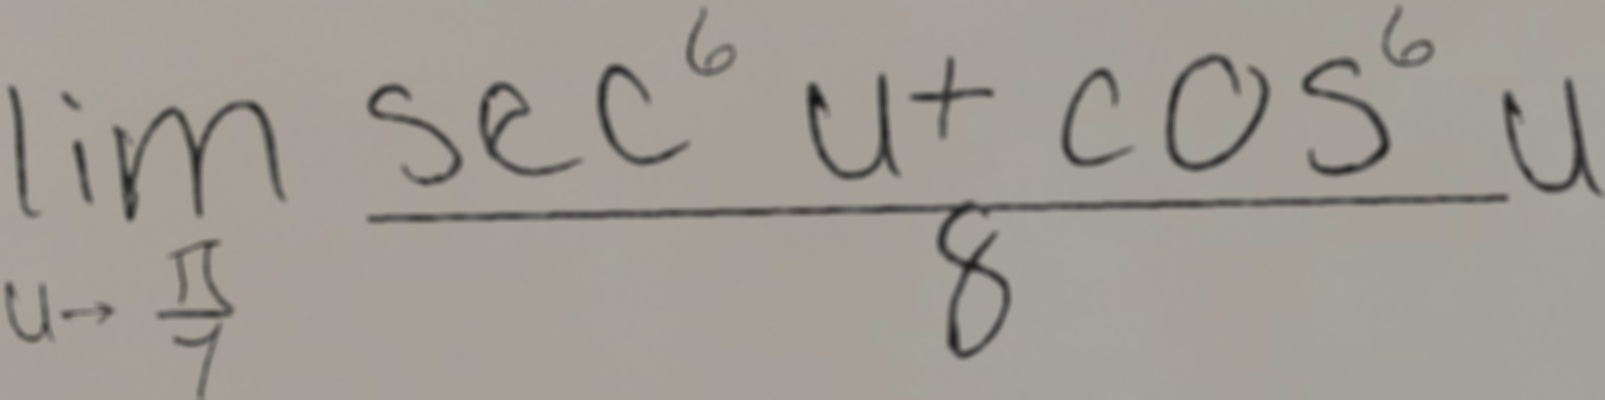 \lim_{u \to \frac{\pi}{7}} \frac{\sec^6 u + \cos^6 u}{8}